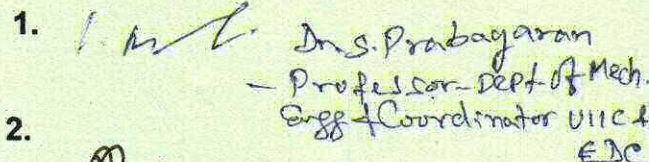 1. Dr. S. Prabagaran
- Professor - Dept of Mech.
Engg & Coordinator UIIC &
EDC
2.